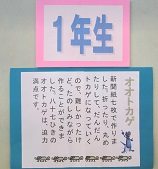 1年生
オオトカゲ
新聞紙七枚で作りま
した。折ったり、丸め
たりして、だんだん
トカゲになっていく
ので、難しかったけ
どたのしみながら
作ることができま
した。八十七ひきの
オオトカゲは、迫力
満点です。